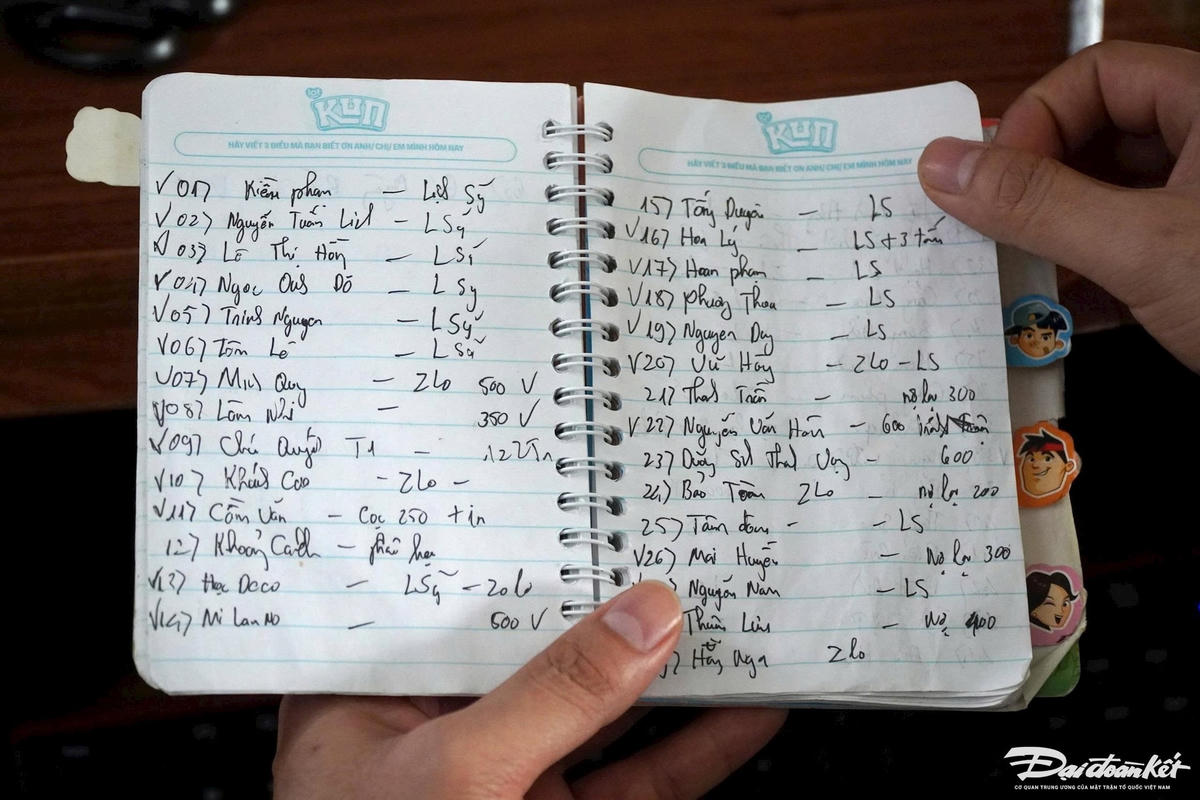 lof KUN
HÃY VIẾT 3 ĐIỀU MÀ BẠN BIẾT ƠN ANH/ CHỊ EM MÌNH HÔM NAY
V 01) Kiểm phạm — Liệt Sỹ
V 02) Nguyễn Tuấn Liệt — L Sỹ
V 03) Lê Thị Hồng — L Sĩ
V 04) Ngọc Đô — L Sỹ
V 05) Trinh Nguyen — L Sỹ
V 06) Tâm Lê — L Sỹ
V 07) Minh Quy — Zlo 500 V
V 08) Lâm Nhi — 350 V
V 09) Chú Quyết T1 —
V 10) Khánh Cao — Zlo —
V 11) Cẩm Vân — Cọc 250 + in
12) Khoảng Cách —
V 13) Học Deco — L Sỹ — Zalo
V 14) Mi Lan No — 500 V
lof KUN
HÃY VIẾT 3 ĐIỀU MÀ BẠN BIẾT ƠN ANH/ CHỊ EM MÌNH HÔM NAY
15) Tống Duyên — LS
V 16) Hoa Lý — LS + 3 tấm
V 17) Hoan phạm — LS
V 18) Phương Thoa — LS
V 19) Nguyen Duy — LS
V 20) Vũ Hồng — Zlo — LS
21) Thanh Trần — nợ lại 300
V 22) Nguyễn Văn Hân — 600
23) Dương — 600
24) Bảo Toàn Zlo — nợ lại 200
25) Tâm đam — — LS
V 26) Mai Huyền — Nợ lại 300
Nguyễn Nam — LS
Thuần — Nợ 400
) Hồng Nga Zlo
Đại đoàn Kết
CƠ QUAN TRUNG ƯƠNG CỦA MẶT TRẬN TỔ QUỐC VIỆT NAM